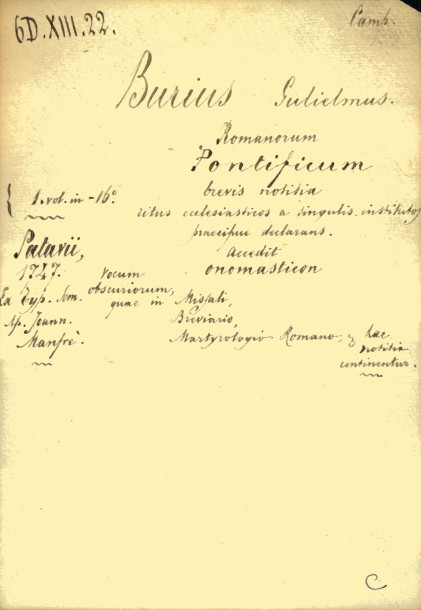 6D.XIII.22.
Camp.
Burius Gulielmus.
Romanorum
Pontificum
brevis notitia
ritus ecclesiasticos a singulis institutos
praecipue declarans.
Accedit
onomasticon
vocum
obscuriorum,
quae in Missali,
Breviario,
Martyrologio Romano, & hac
notitia
continentur.
1. vol. in-16°
Patavii,
1727.
Ex Typ. Sem.
Ap. Joann.
Manfrè.
C